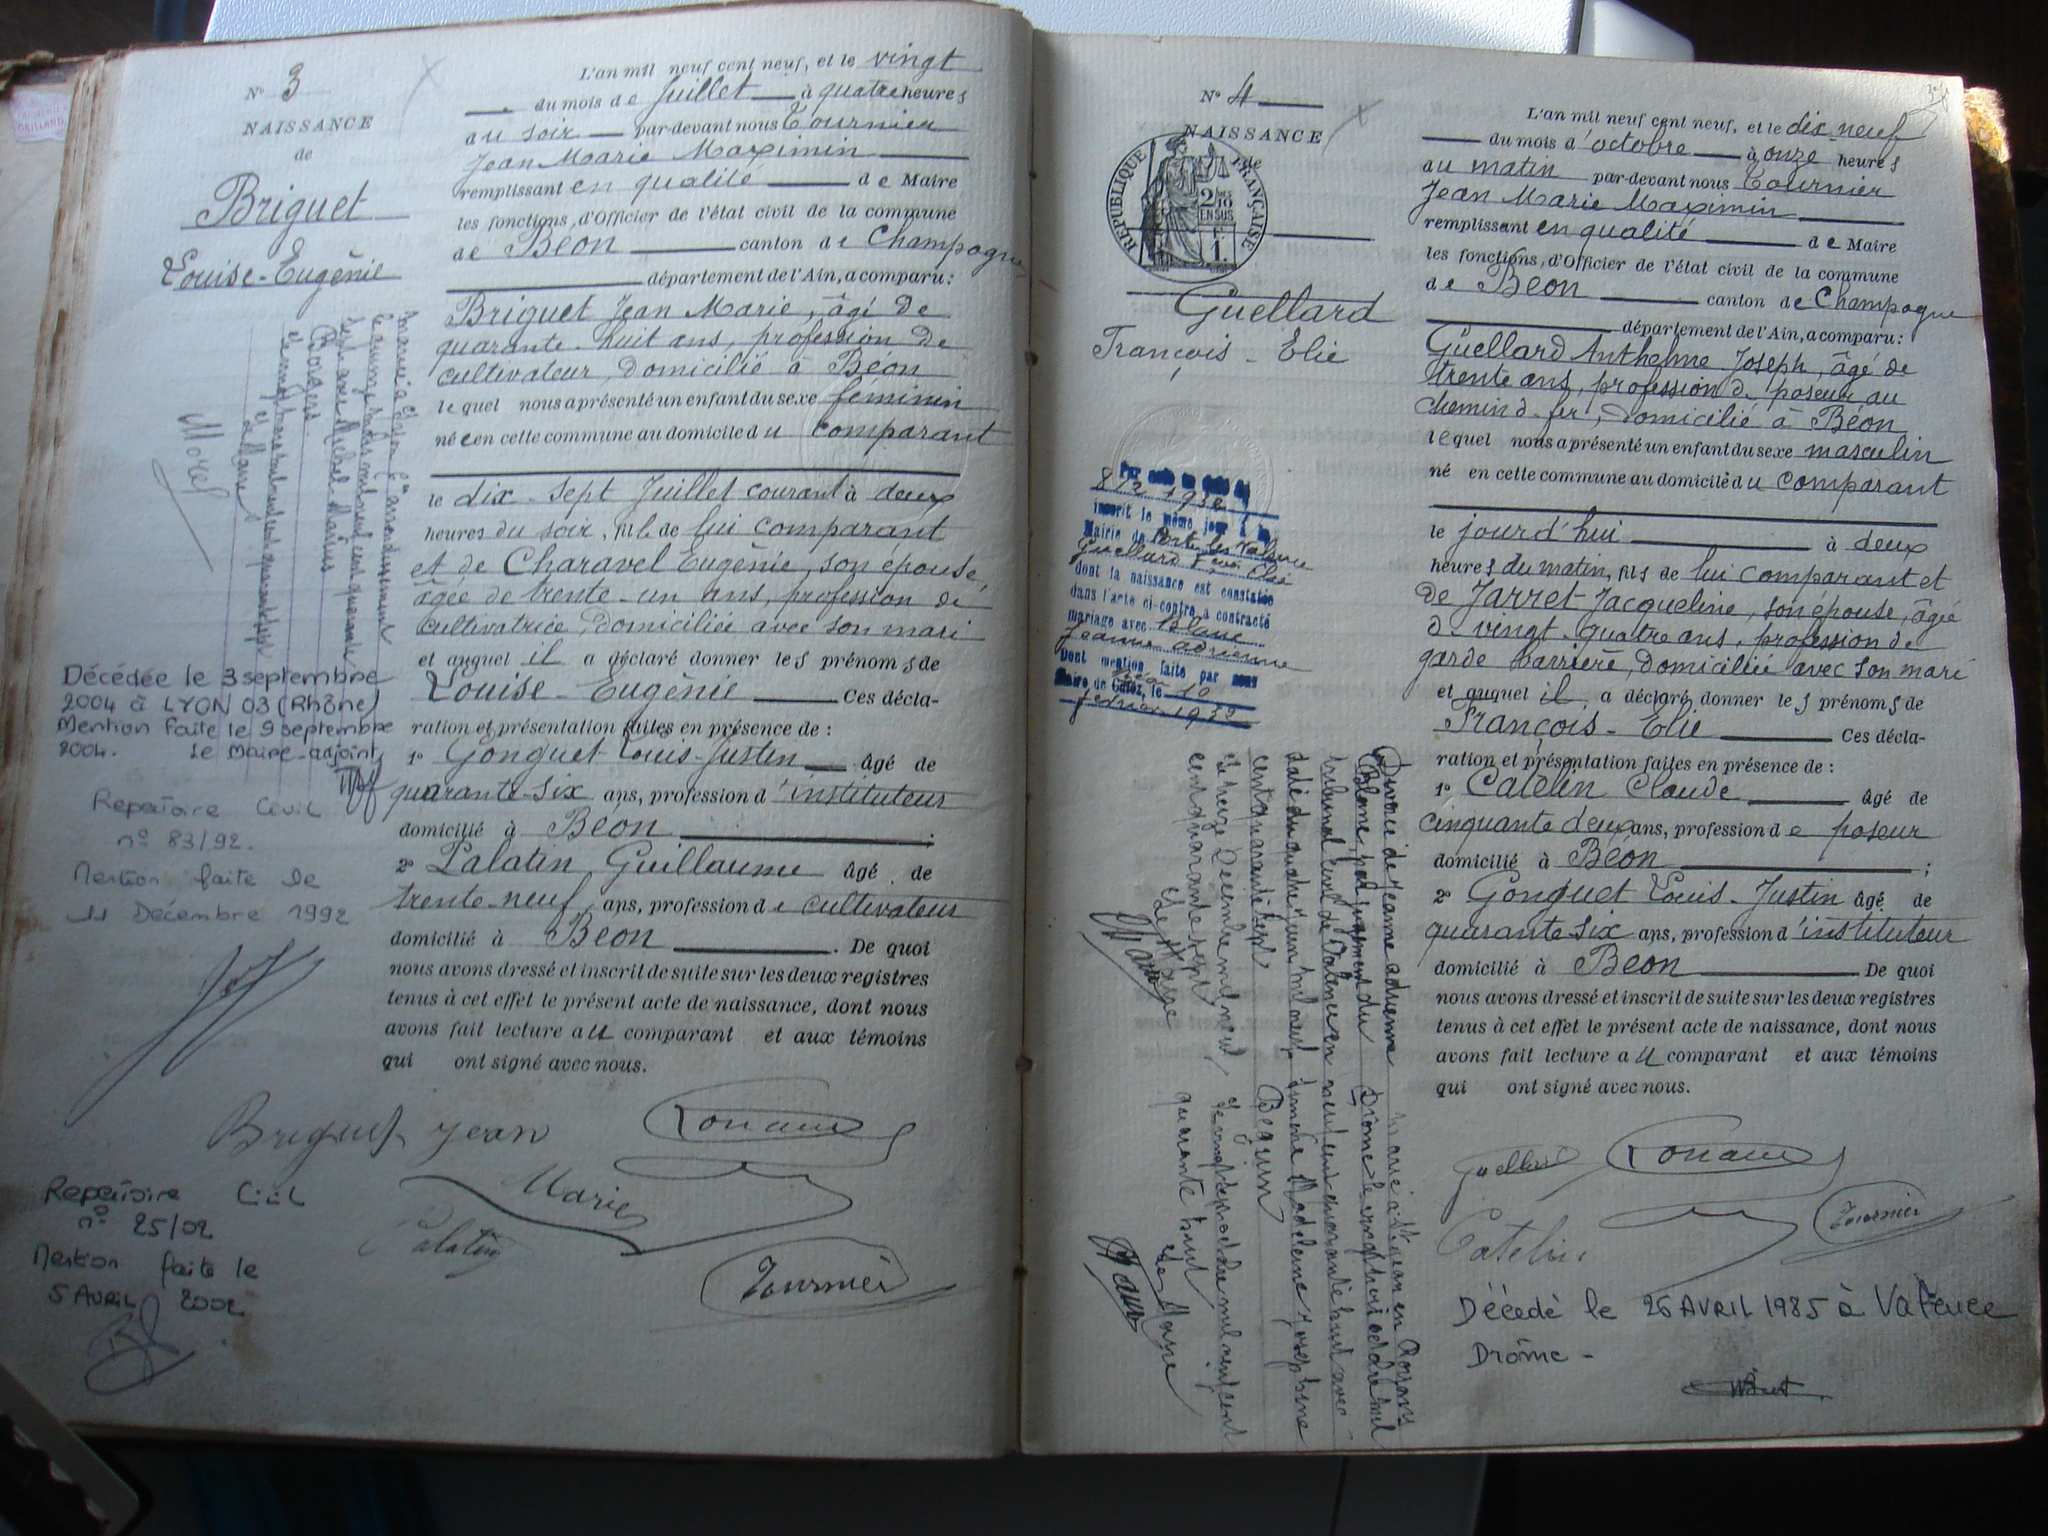 N° 3
NAISSANCE
de
Briguet
Louise-Eugénie
L'an mil neuf cent neuf, et le vingt
du mois de Juillet à quatre heures
au soir par-devant nous Tournier
Jean Marie Maximin
remplissant en qualité de Maire
les fonctions, d'Officier de l'état civil de la commune
de Béon canton de Champagne
département de l'Ain, a comparu :
Briguet Jean Marie, âgé de
quarante-huit ans, profession de
cultivateur, domicilié à Béon
lequel nous a présenté un enfant du sexe féminin
née en cette commune au domicile du comparant
le dix-sept Juillet courant à deux
heures du soir, fille de lui comparant
et de Charavel Eugénie, son épouse,
âgée de trente-un ans, profession de
cultivatrice, domiciliée avec son mari
et auquel il a déclaré donner les prénoms de
Louise-Eugénie Ces décla-
ration et présentation faites en présence de :
1° Gonguet Louis-Justin âgé de
quarante-six ans, profession d'instituteur
domicilié à Béon ;
2° Palatin Guillaume âgé de
trente-neuf ans, profession de cultivateur
domicilié à Béon . De quoi
nous avons dressé et inscrit de suite sur les deux registres
tenus à cet effet le présent acte de naissance, dont nous
avons fait lecture au comparant et aux témoins
qui ont signé avec nous.
Briguet Jean
Marie
Palatin
Tournier
arrondissement
le quinze mars mil neuf cent quarante
avec Michel Marius
le Maire
Morel
Décédée le 3 septembre
2004 à LYON 03 (Rhône)
Mention faite le 9 septembre
2004. Le Maire-adjoint,
Repertoire Civil
n° 83/92.
Mention faite le
11 Décembre 1992
Repertoire Civil
n° 25/02
Mention faite le
5 AVRIL 2002
N° 4
NAISSANCE
de
RÉPUBLIQUE FRANÇAISE
2/10
EN SUS
1
Guellard
François-Elie
Par acte en date du
8/2 1932
inscrit le même jour à la
Mairie de Portes les Valence
Guellard Fçois Elie
dont la naissance est constatée
dans l'acte ci-contre a contracté
mariage avec Blanc
Jeanne Adrienne
Dont mention faite par nous
Maire de Culoz, le 10
février 1932
Divorcé de Jeanne Adrienne
Blanc, par jugement du
tribunal civil de Valence en
date du quatre juin mil neuf
cent quarante sept
le treize Décembre mil neuf
cent quarante sept
Le Maire
Marié à St Jean en Royans
Drôme le vingt trois octobre mil
neuf cent quarante huit avec
Simone Madeleine Josephine
Béguin
quarante huit
Le Maire
L'an mil neuf cent neuf, et le dix neuf
du mois d'octobre à onze heures
au matin par-devant nous Tournier
Jean Marie Maximin
remplissant en qualité de Maire
les fonctions, d'Officier de l'état civil de la commune
de Béon canton de Champagne
département de l'Ain, a comparu :
Guellard Anthelme Joseph, âgé de
trente ans, profession de poseur au
chemin de fer, domicilié à Béon
lequel nous a présenté un enfant du sexe masculin
né en cette commune au domicile du comparant
le jour d'hui à deux
heures du matin, fils de lui comparant et
de Jarret Jacqueline, son épouse, âgée
de vingt-quatre ans, profession de
garde barrière, domiciliée avec son mari
et auquel il a déclaré donner les prénoms de
François-Elie Ces décla-
ration et présentation faites en présence de :
1° Catelin Claude âgé de
cinquante deux ans, profession de poseur
domicilié à Béon ;
2° Gonguet Louis-Justin âgé de
quarante-six ans, profession d'instituteur
domicilié à Béon De quoi
nous avons dressé et inscrit de suite sur les deux registres
tenus à cet effet le présent acte de naissance, dont nous
avons fait lecture au comparant et aux témoins
qui ont signé avec nous.
Guellard
Catelin
Tournier
Décédé le 26 AVRIL 1985 à Valence
Drôme -